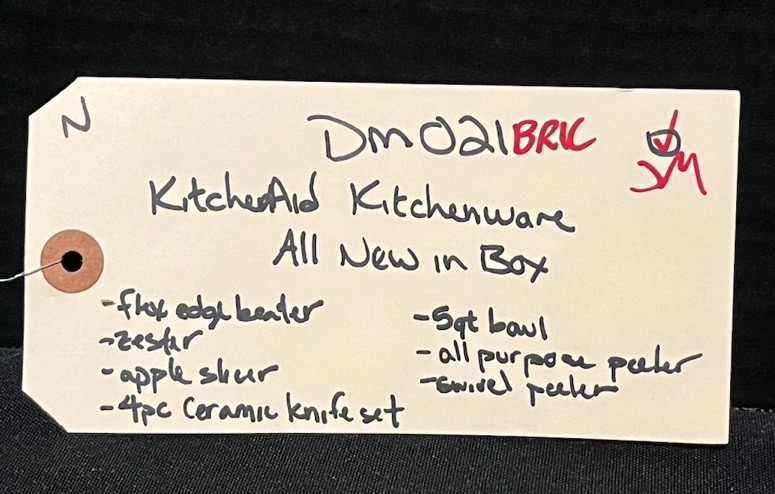 N
DM021BRIC
JM
KitchenAid Kitchenware
All New in Box
-flex edge beater
-zester
-apple slicer
-4pc Ceramic knife set
-5qt bowl
-all purpose peeler
-swivel peeler